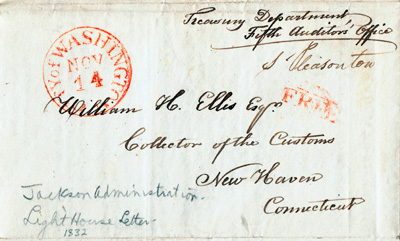 Treasury Department
Fifth Auditors' Office
S Pleasonton
CITY OF WASHINGTON
NOV
14
FREE
William H. Ellis Esqr.
Collector of the Customs
New Haven
Connecticut
Jackson Administration.
Light House Letter
1832